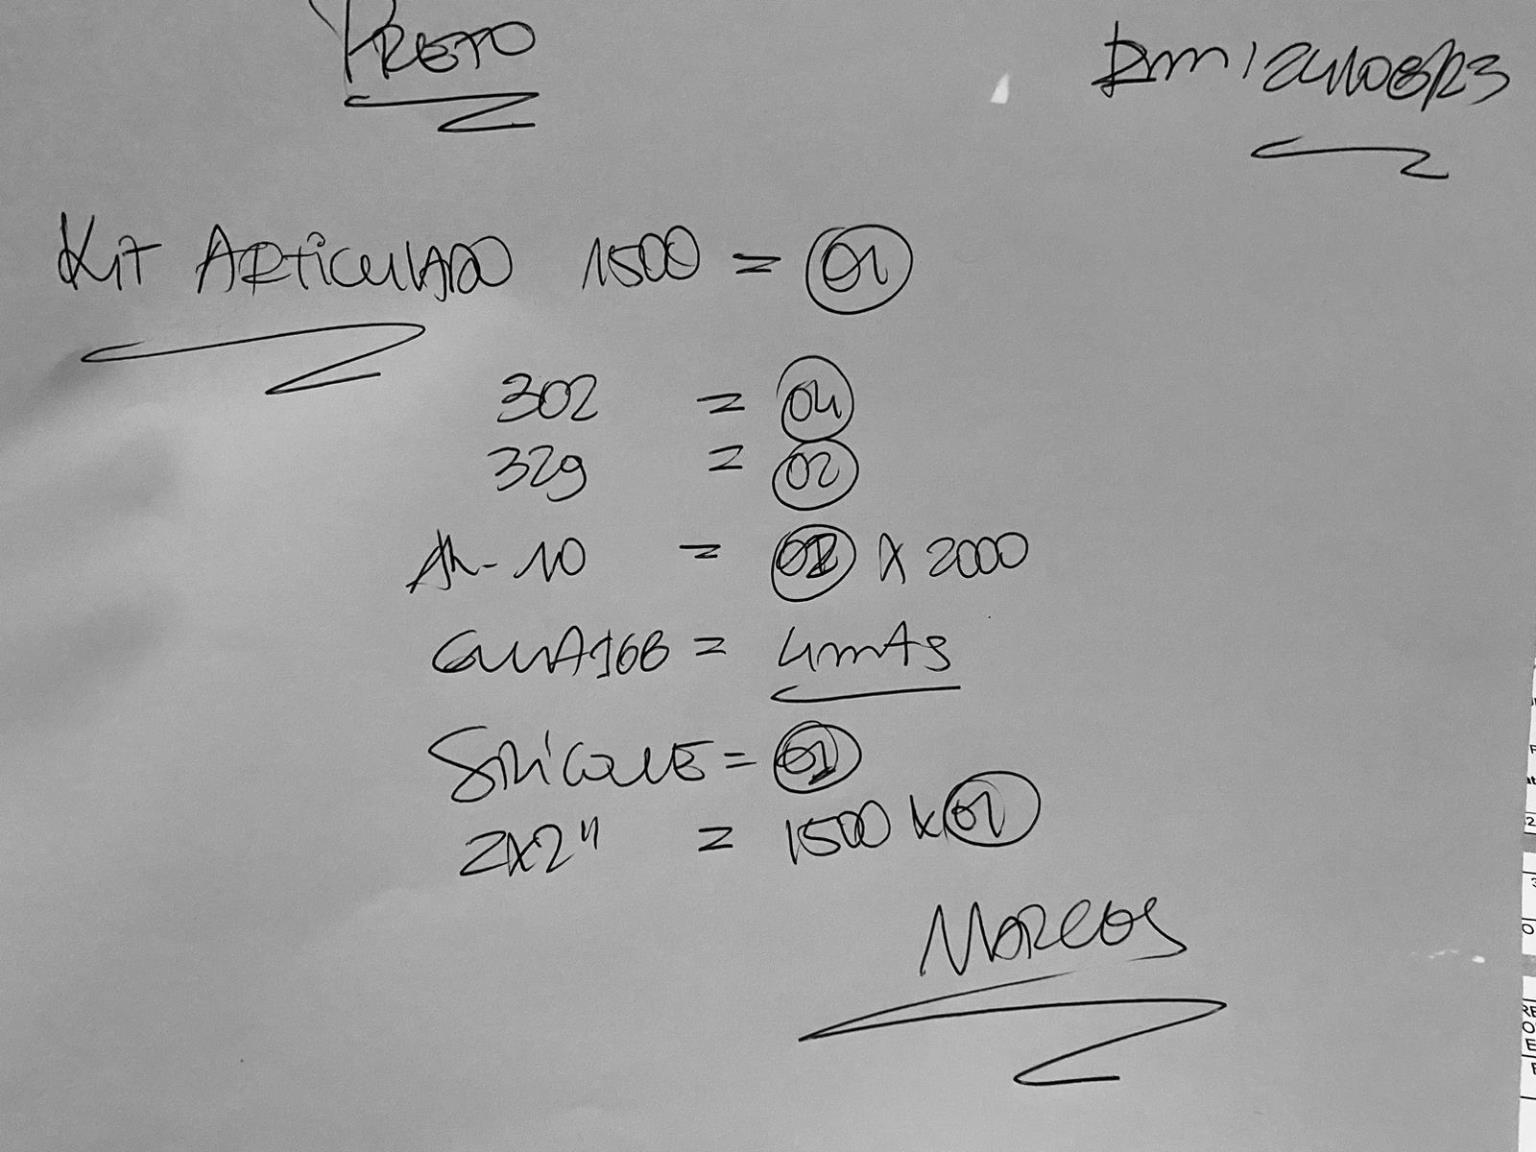 PRETO
24/08/23
Kit ARTiculADO 1500 = 01
302 = 04
329 = 02
AL-10 = 01 X 2000
GUIA 168 = 4mts
SiliCONE = 01
2x2" = 1500 x 01
MARCOS